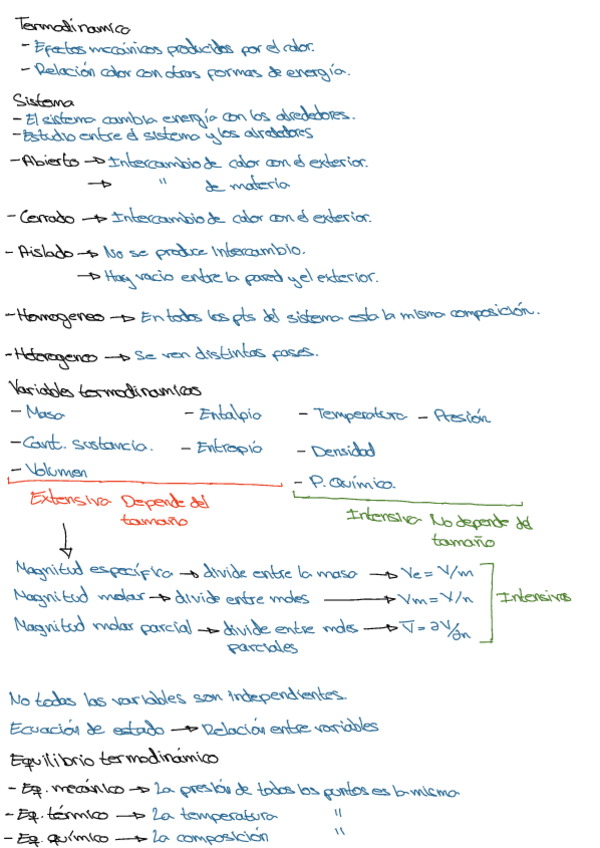 Termodinamico
- Efectos mecánicos producidos por el calor.
- Relación calor con otras formas de energía.
Sistema
- El sistema cambia energía con los alrededores.
- Estudio entre el sistema y los alrededores
- Abierto → Intercambio de calor con el exterior.
→ " de materia
- Cerrado → Intercambio de calor con el exterior.
- Aislado → No se produce intercambio.
→ Hay vacio entre la pared y el exterior.
- Homogeneo → En todos los pts del sistema esta la misma composición.
- Heterogeneo → Se ven distintas fases.
Variables termodinamicas
- Masa - Entalpia - Temperatura - Presión
- Cant. sustancia. - Entropía - Densidad
- Volumen - P. Químico.
Extensiva Depende del tamaño
Intensiva No depende del tamaño
Magnitud específica → divide entre la masa → Ve = V/m
Magnitud molar → divide entre moles → Vm = V/n
Magnitud molar parcial → divide entre moles parciales → V̅ = ∂V/∂n
Intensivas
No todas las variables son independientes.
Ecuación de estado → Relación entre variables
Equilibrio termodinámico
- Eq. mecánico → La presión de todos los puntos es la misma
- Eq. térmico → La temperatura "
- Eq. químico → La composición "